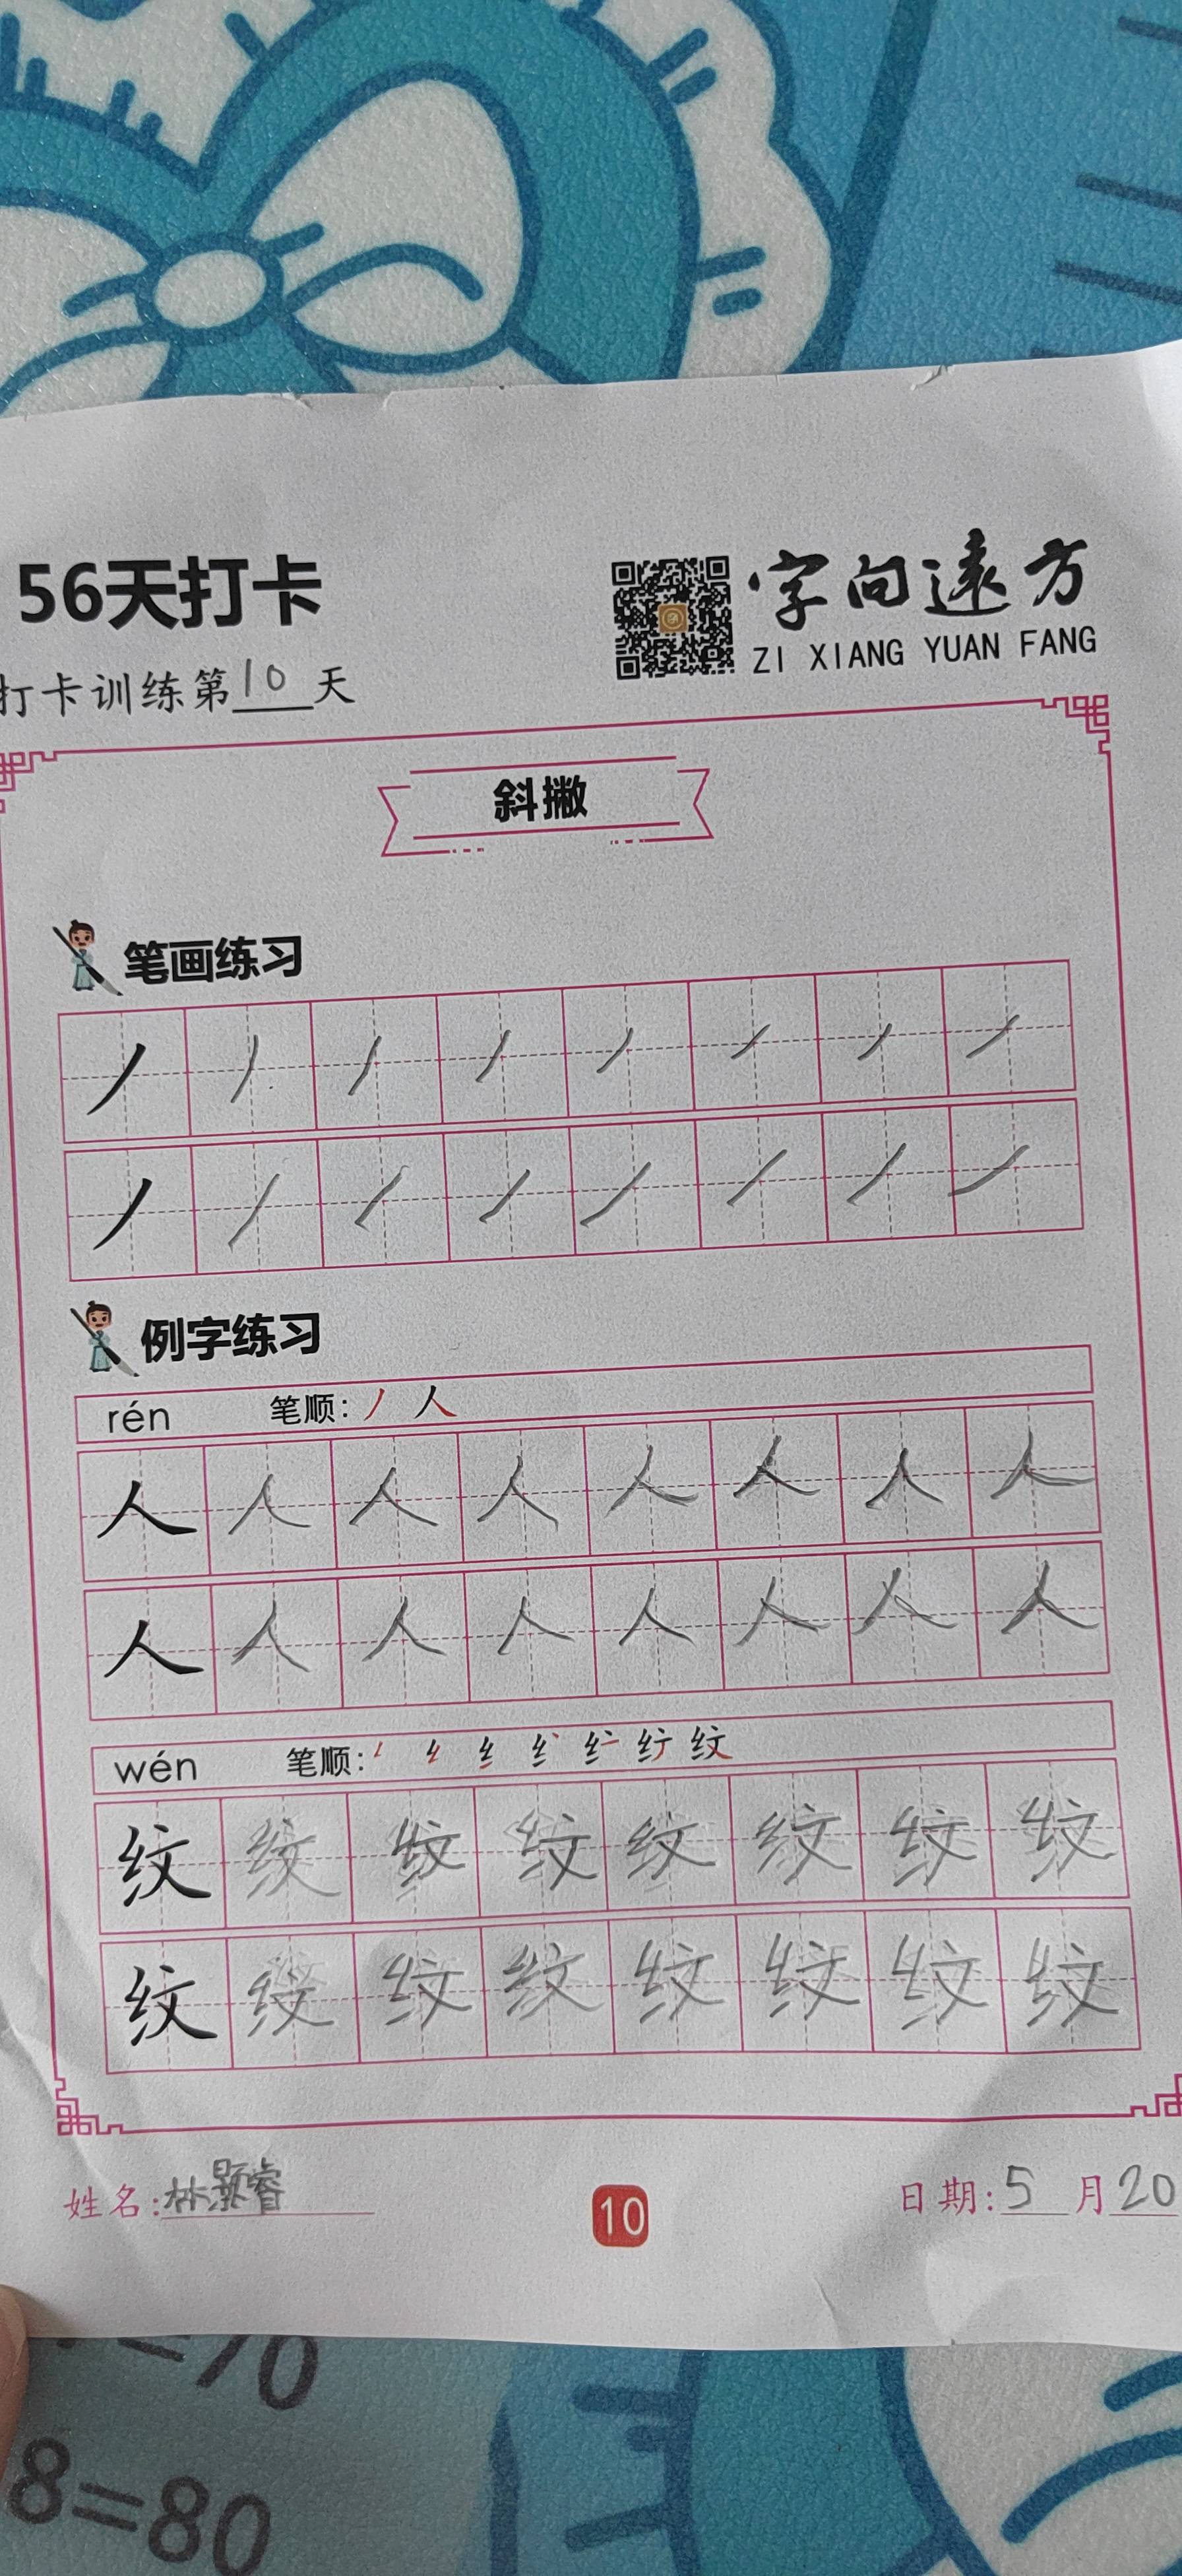 56天打卡
字向遠方
ZI XIANG YUAN FANG
打卡训练第10天
斜撇
笔画练习
丿丿丿丿丿丿丿丿
丿丿丿丿丿丿丿丿
例字练习
rén 笔顺: 丿 人
人人人人人人人人
人人人人人人人人
wén 笔顺:
纹纹纹纹纹纹纹纹
纹纹纹纹纹纹纹纹
姓名:林颢睿
10
日期:5月20
=70
8=80